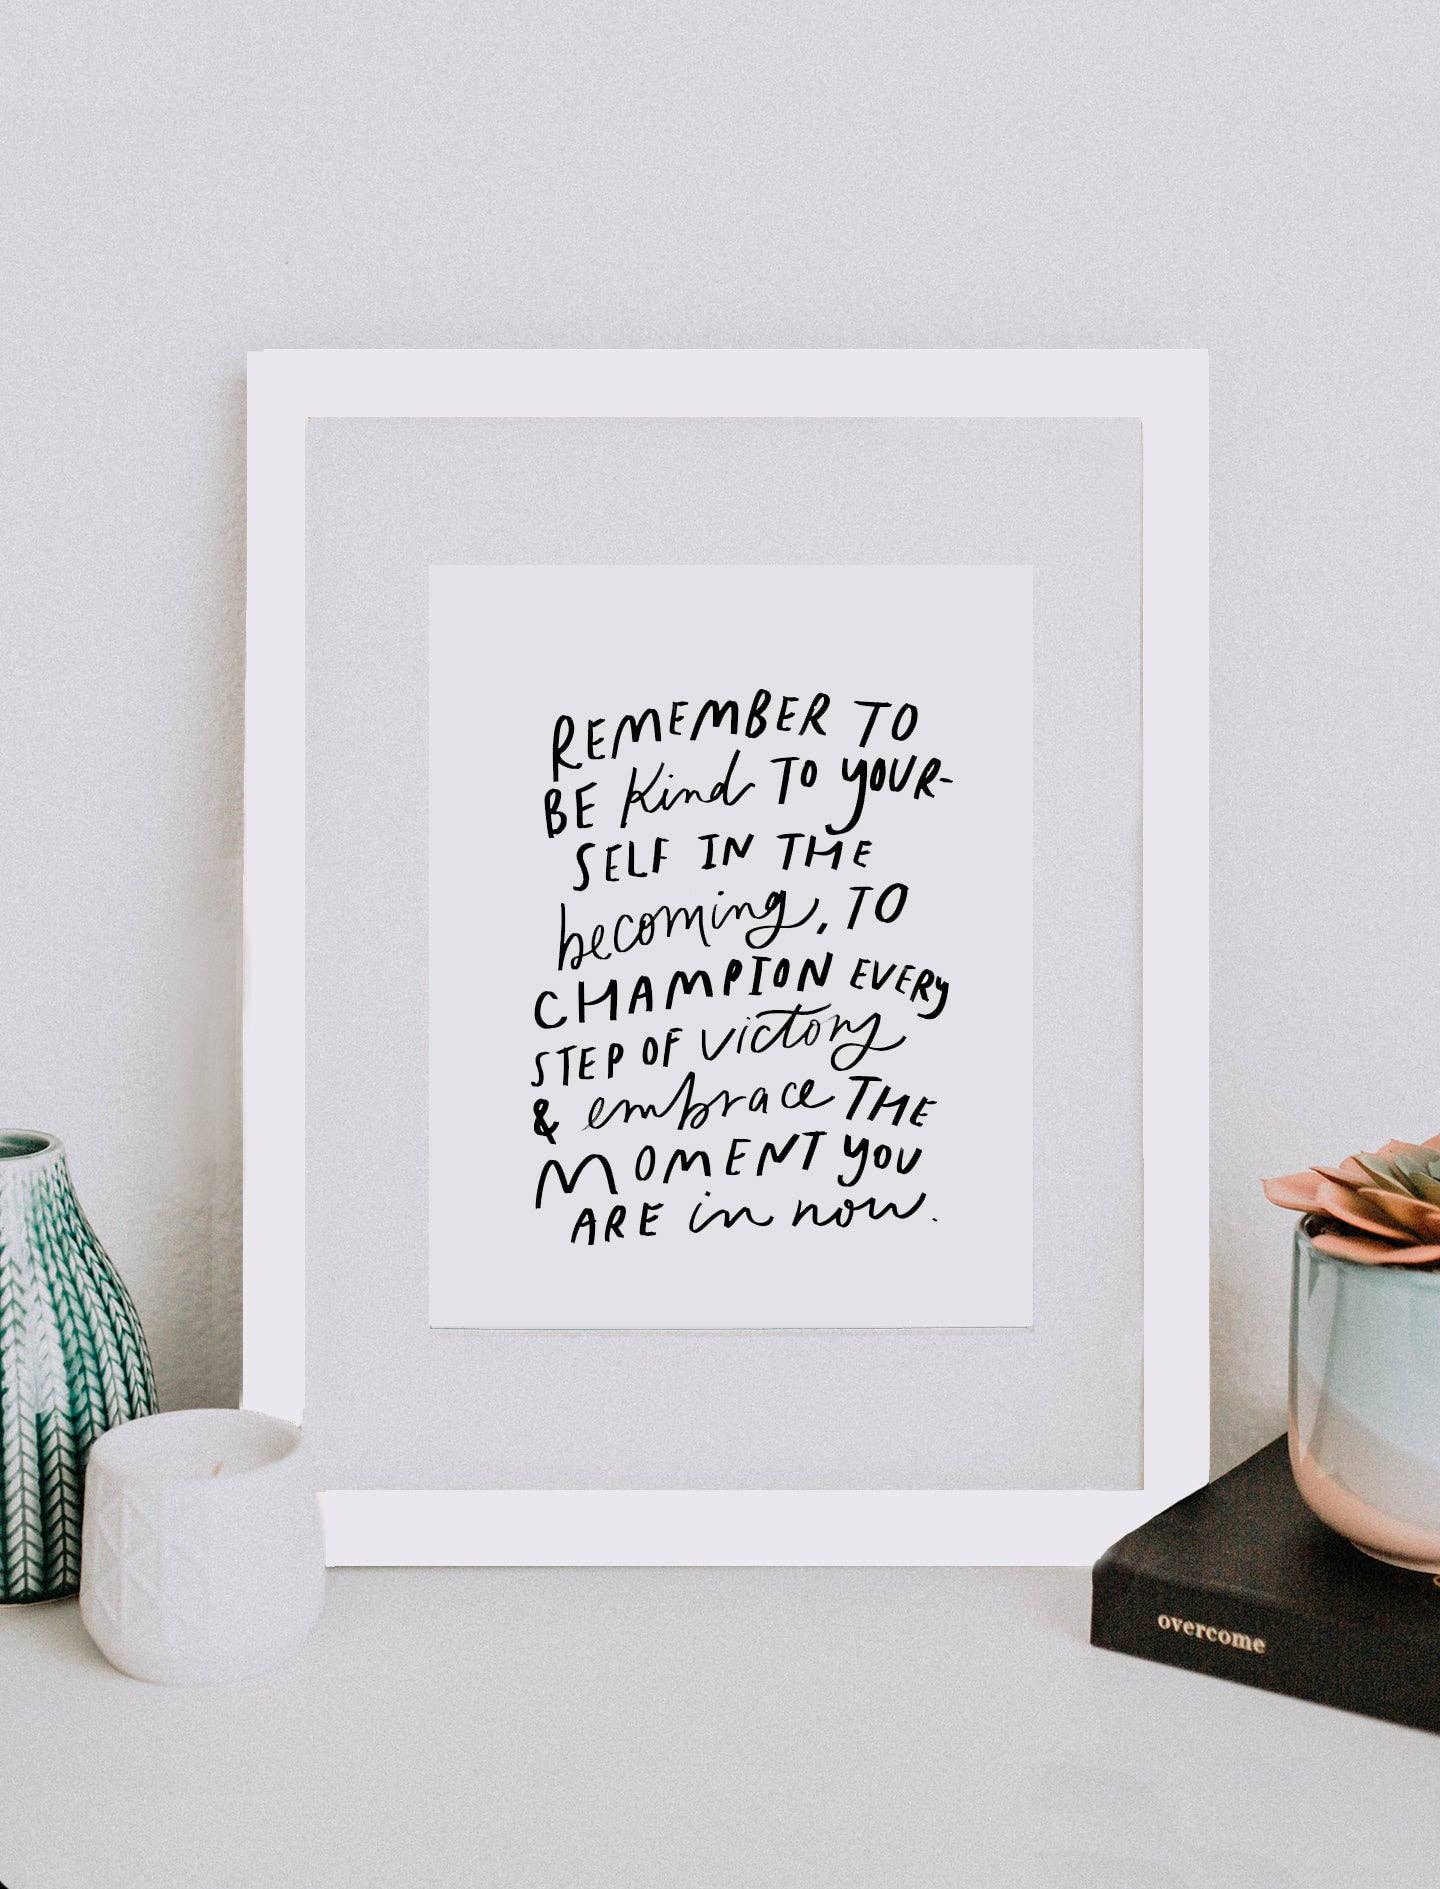 REMEMBER TO
BE kind TO YOUR-
SELF IN THE
becoming, TO
CHAMPION EVERY
STEP OF victory
& embrace THE
MOMENT YOU
ARE in now.
overcome